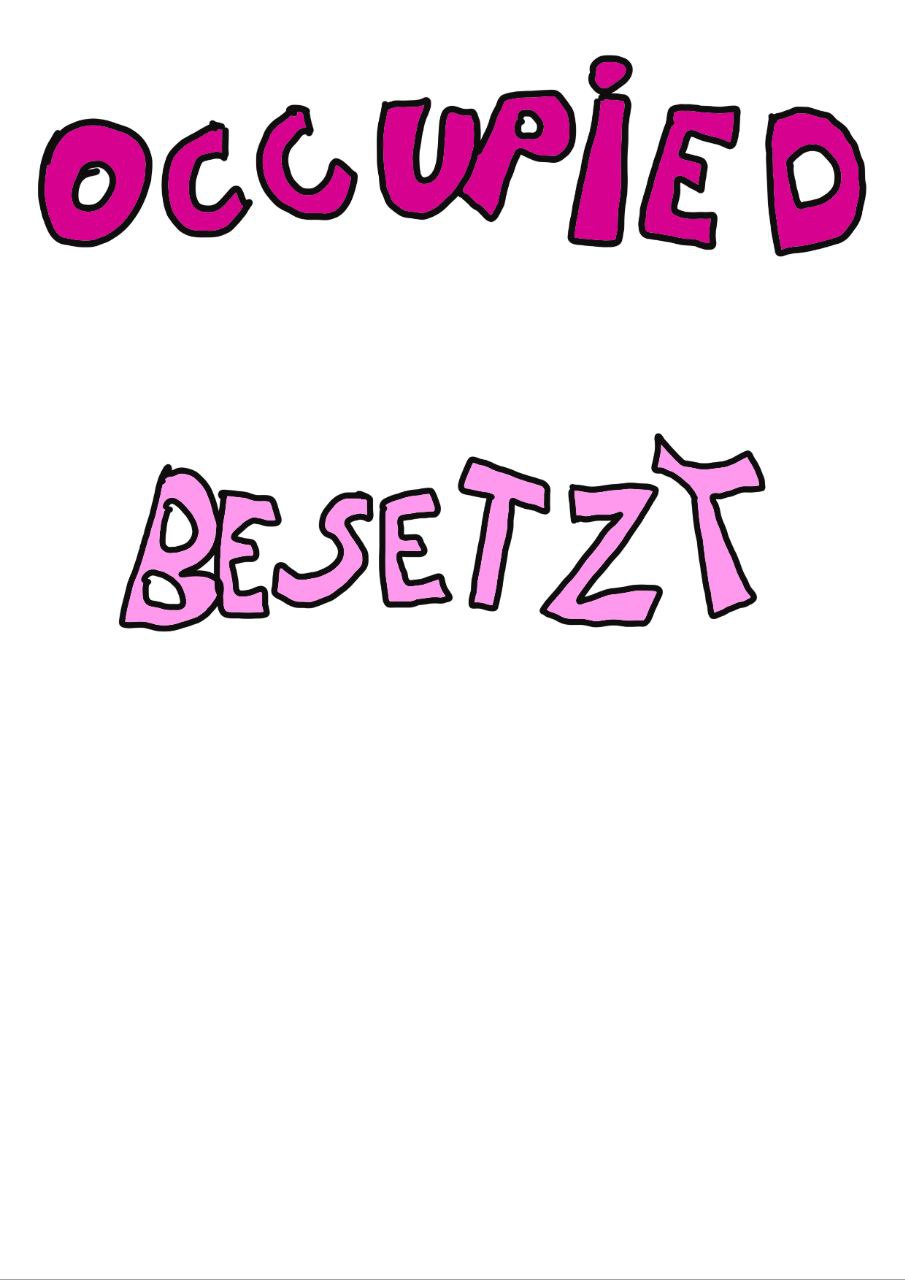 OCCUPiED
BESETZT